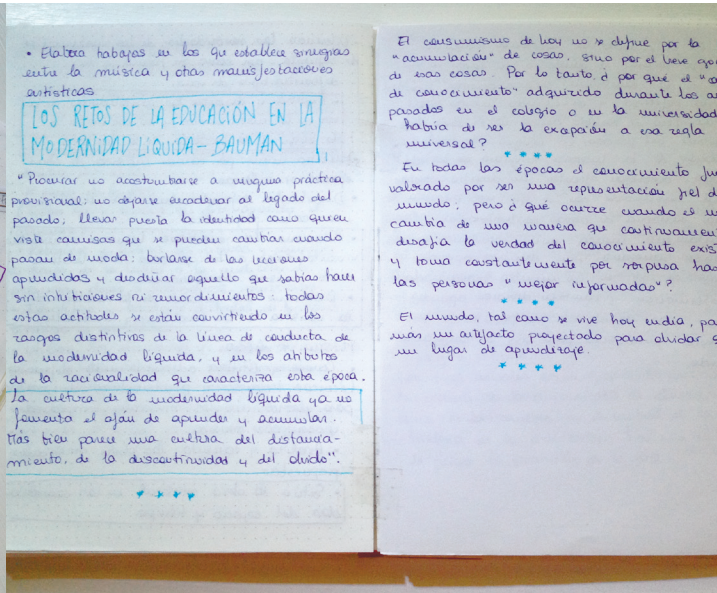 • Elabora trabajos en los que establece sinergias
entre la música y otras manifestaciones
artísticas
LOS RETOS DE LA EDUCACIÓN EN LA
MODERNIDAD LÍQUIDA - BAUMAN
"Procurar no acostumbrarse a ninguna práctica
provisional; no dejarse encadenar al legado del
pasado; llevar puesta la identidad como quien
viste camisas que se pueden cambiar cuando
pasan de moda; burlarse de las lecciones
aprendidas y desdeñar aquello que sabías hacer
sin intuiticiones ni remordimientos: todas
estas actitudes se están convirtiendo en los
rasgos distintivos de la línea de conducta de
la modernidad líquida, y en los atributos
de la racionalidad que caracteriza esta época.
La cultura de la modernidad líquida ya no
fomenta el afán de aprender y acumular.
Más bien parece una cultura del distancia-
miento, de la discontinuidad y del olvido".
El consumismo de hoy no se define por la
"acumulación" de cosas, sino por el breve go
de esas cosas. Por lo tanto, ¿por qué el "
de conocimiento" adquirido durante los a
pasados en el colegio o en la universidad
habría de ser la excepción a esa regla
universal?
En todas las épocas el conocimiento fu
valorado por ser una representación fiel d
mundo; pero ¿qué ocurre cuando el m
cambia de una manera que continuamen
desafía la verdad del conocimiento exis
y toma constantemente por sorpresa has
las personas "mejor informadas"?
El mundo, tal como se vive hoy en día, pa
más un artefacto proyectado para olvidar q
un lugar de aprendizaje.